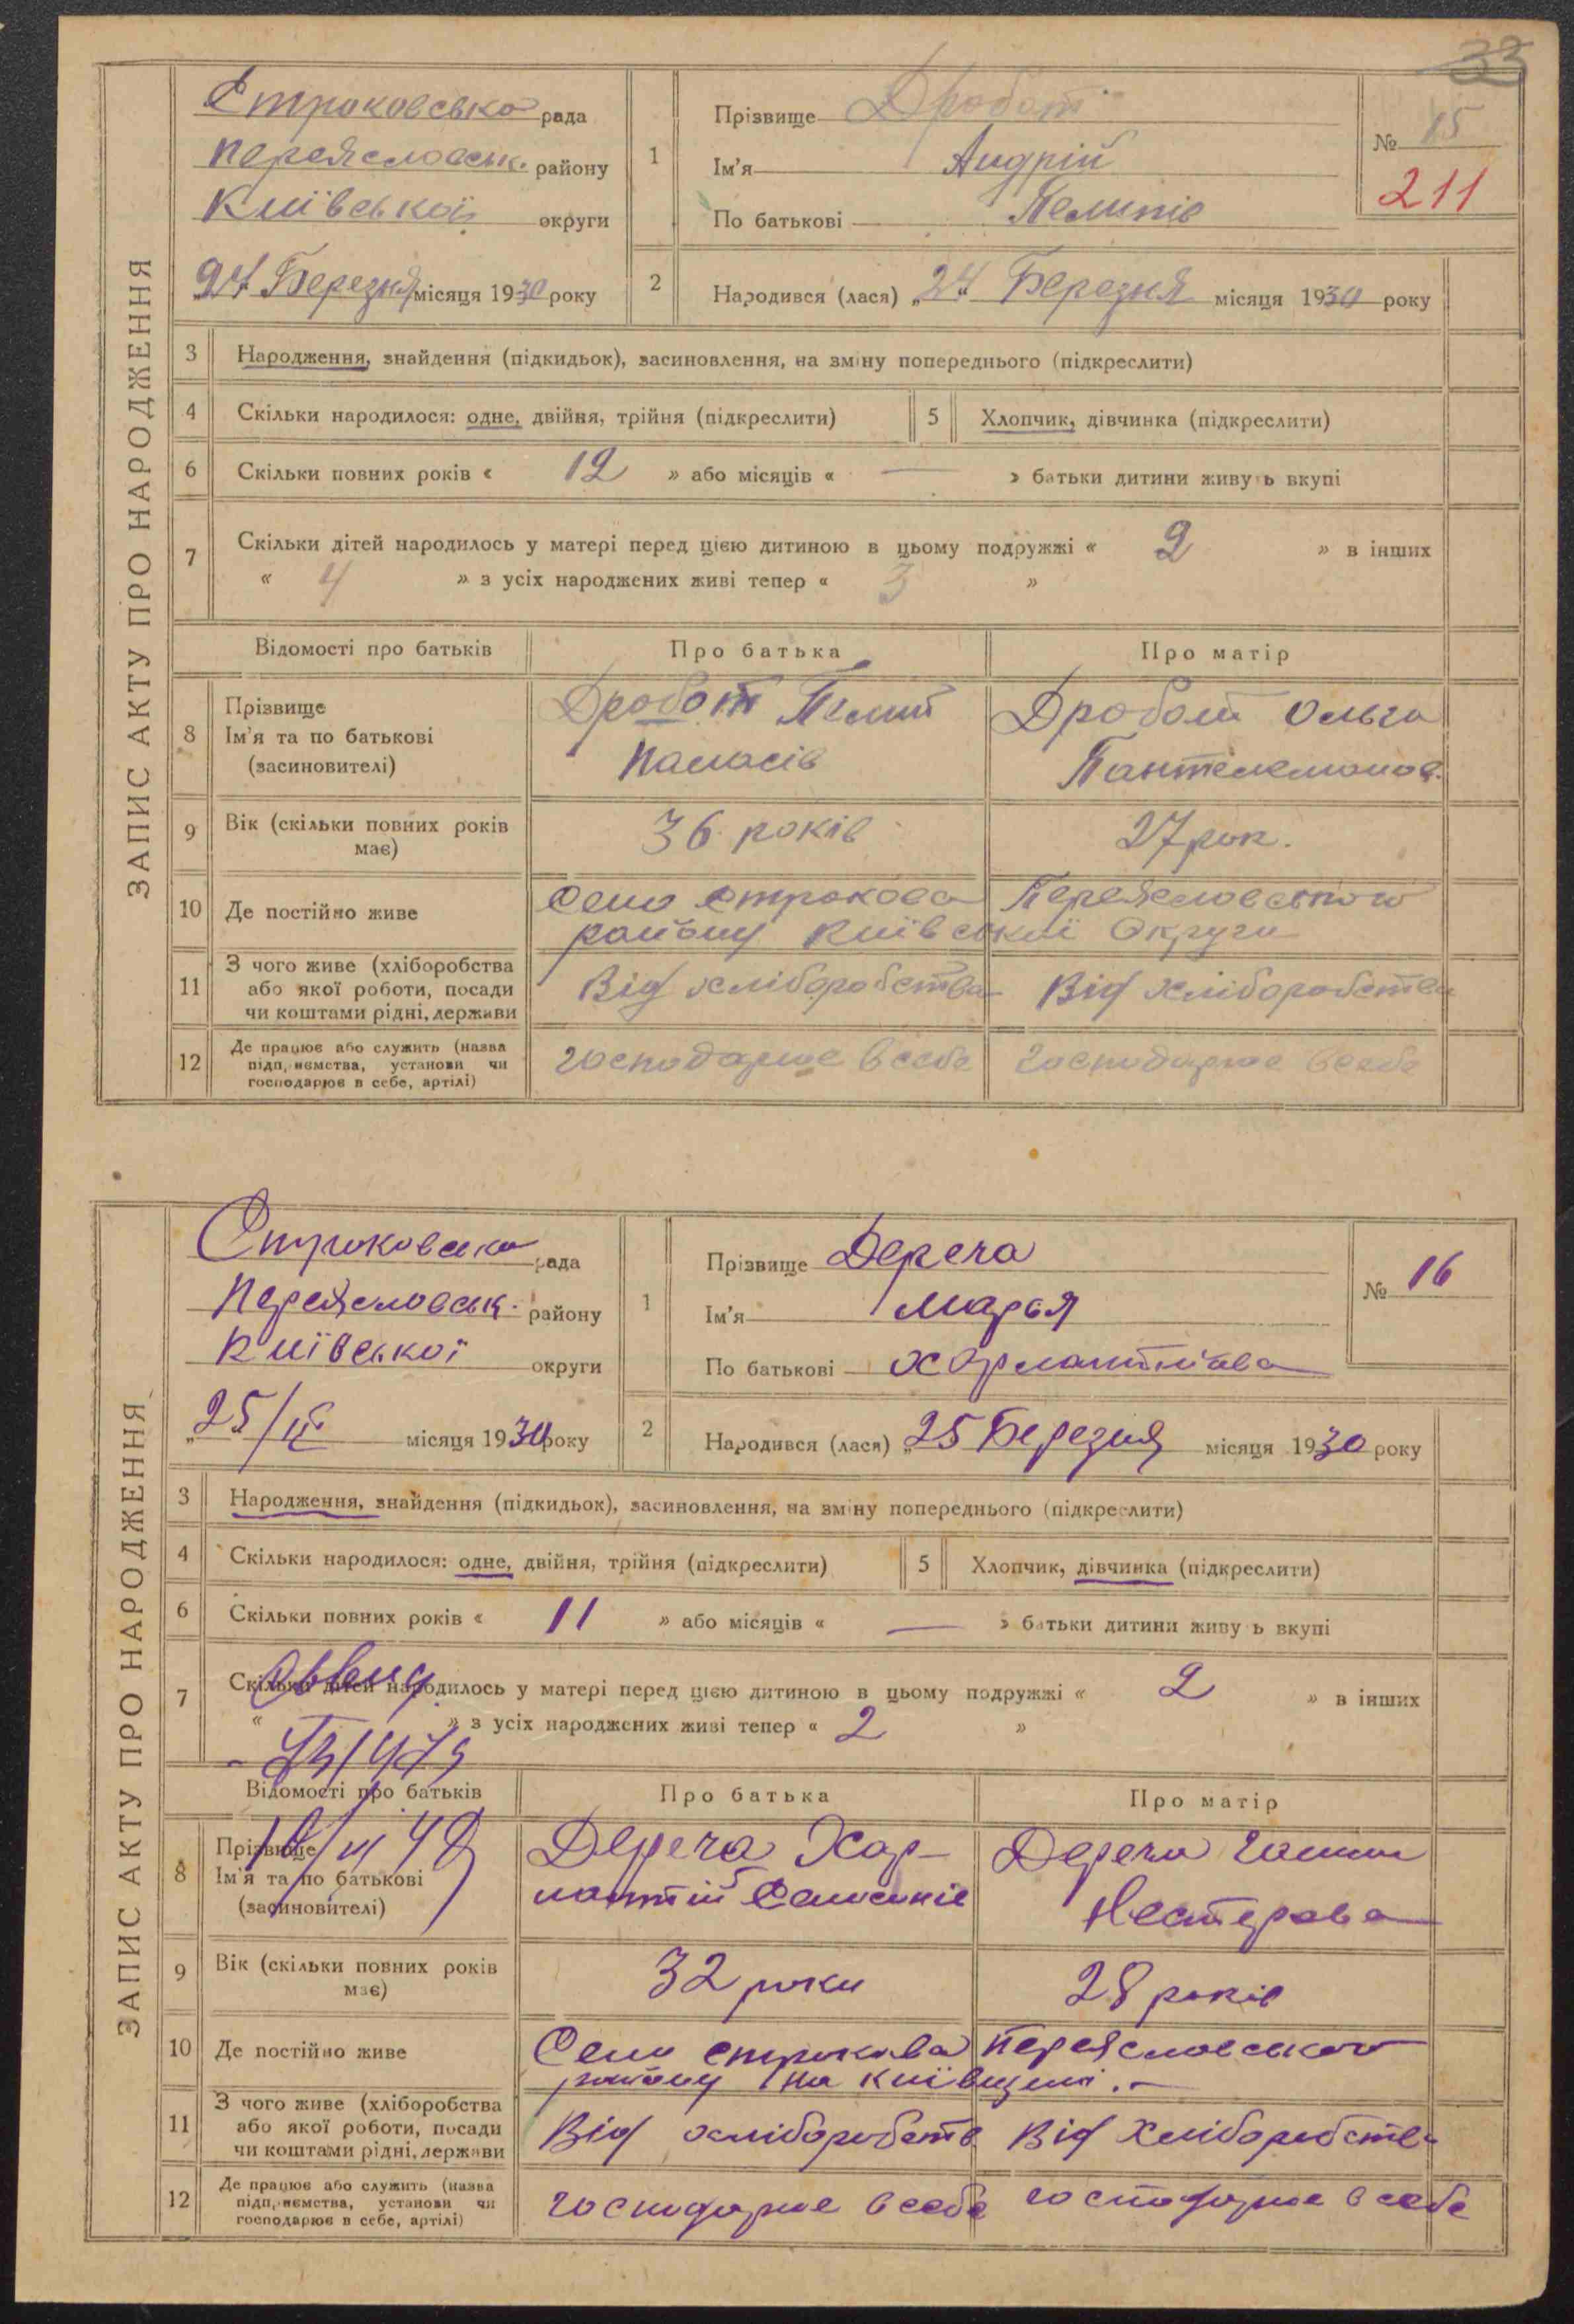 33
ЗАПИС АКТУ ПРО НАРОДЖЕННЯ
Строковська рада
Переясловськ. району
Київської округи
24 Березня місяця 1930 року
1
Прізвище Дробот
Ім'я Андрій
По батькові Пелипів
№ 15
211
2
Народився (лася) „24" Березня місяця 1930 року
3 Народження, знайдення (підкидьок), засиновлення, на зміну попереднього (підкреслити)
4 Скільки народилося: одне, двійня, трійня (підкреслити)
5 Хлопчик, дівчинка (підкреслити)
6 Скільки повних років « 12 » або місяців « — » батьки дитини живуть вкупі
7 Скільки дітей народилось у матері перед цією дитиною в цьому подружжі « 2 » в інших
« 4 » з усіх народжених живі тепер « 3 »
Відомості про батьків Про батька Про матір
8 Прізвище
Ім'я та по батькові
(засиновителі)
Дробот Пелип
Панасів
Дробот Ольга
Пантелемонов.
9 Вік (скільки повних років має)
36 років
27 рок.
10 Де постійно живе
Село Строкова Переясловського
району Київської Округи
11 З чого живе (хліборобства
або якої роботи, посади
чи коштами рідні, держави
Від хліборобства Від хліборобства
12 Де працює або служить (назва
підприємства, установи чи
господарює в себе, артілі)
господарює в себе господарює в себе
ЗАПИС АКТУ ПРО НАРОДЖЕННЯ
Строковська рада
Переясловськ. району
Київської округи
„25/III місяця 1930 року
1
Прізвище Дереча
Ім'я Марья
По батькові Харлантіївва
№ 16
2
Народився (лася) „25 Березня місяця 1930 року
3 Народження, знайдення (підкидьок), засиновлення, на зміну попереднього (підкреслити)
4 Скільки народилося: одне, двійня, трійня (підкреслити)
5 Хлопчик, дівчинка (підкреслити)
6 Скільки повних років « 11 » або місяців « — » батьки дитини живуть вкупі
7 Скільки дітей народилось у матері перед цією дитиною в цьому подружжі « 2 » в інших
« » з усіх народжених живі тепер « 2 »
Відомості про батьків Про батька Про матір
8 Прізвище
Ім'я та по батькові
(засиновителі)
Дереча Хар-
лантій
Дереча
Нестерова
9 Вік (скільки повних років має)
32 роки
28 років
10 Де постійно живе
Село Строкова Переясловського
району на Київщині.-
11 З чого живе (хліборобства
або якої роботи, посади
чи коштами рідні, держави
Від хліборобств Від Хліборобства
12 Де працює або служить (назва
підприємства, установи чи
господарює в себе, артілі)
господарює в себе господарює в себе